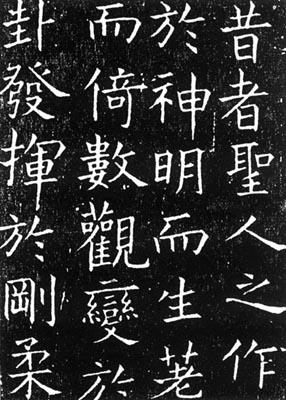 昔者聖人之作
於神明而生蓍
而倚數觀變於
卦發揮於剛柔